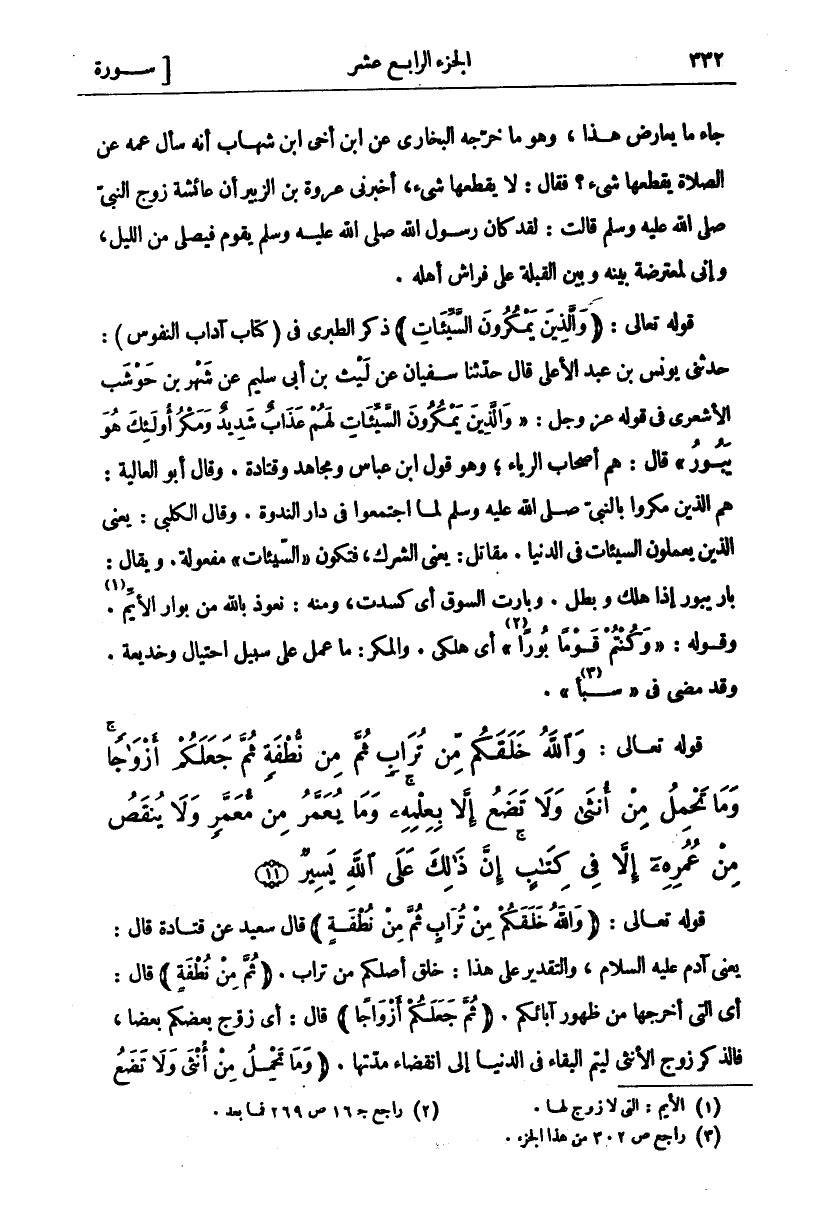 ٣٣٢ الجزء الرابع عشر [ ســـورة
جاء ما يعارض هـذا ، وهو ما خرّجه البخارى عن ابن أخى ابن شهـاب أنه سأل عمه عن
الصلاة يقطعها شىء ؟ فقال : لا يقطعها شىء، أخبرنى عروة بن الزبير أن عائشة زوج النبىّ
صلى الله عليه وسلم قالت : لقد كان رسـول الله صلى الله عليـه وسلم يقوم فيصلى من الليل،
وإنى لمعترضة بينه وبين القبلة على فراش أهله .
قوله تعالى : ﴿ وَالَّذِينَ يَمْكُرُونَ السَّيِّئَاتِ ﴾ ذكر الطبرى فى (كتاب آداب النفوس) :
حدثنى يونس بن عبد الأعلى قال حدّثنا سـفيان عن لَيْث بن أبى سليم عن شَهْر بن حَوْشَب
الأشعرى فى قوله عز وجل : « وَالَّذِينَ يَمْكُرُونَ السَّيِّئَاتِ لَهُمْ عَذَابٌ شَدِيدٌ وَمَكْرُ أُولَـئِكَ هُوَ
يَبُورُ » قال : هم أصحاب الرياء ؛ وهو قول ابن عباس ومجاهد وقتادة . وقال أبو العالية :
هم الذين مكروا بالنبىّ صـلى الله عليه وسلم لمـا اجتمعوا فى دار الندوة . وقال الكلبى : يعنى
الذين يعملون السيئات فى الدنيا . مقاتل : يعنى الشرك، فتكون «السّيئات» مفعولة. ويقال :
بار يبور إذا هلك وبطل . وبارت السوق أى كسدت، ومنه : نعوذ بالله من بوار الأيِّم (١) .
وقـوله : « وَكُنْتُمْ قَـوْمًا بُورًا (٢) » أى هلكى . والمكر: ما عمل على سبيل احتيال وخديعة .
وقد مضى فى « سـبأ (٣) » .
قوله تعـالى : وَٱللَّهُ خَلَقَكُم مِّن تُرَابٍ ثُمَّ مِن نُّطْفَةٍ ثُمَّ جَعَلَكُمْ أَزْوَٰجًاۚ
وَمَا تَحْمِلُ مِنْ أُنثَىٰ وَلَا تَضَعُ إِلَّا بِعِلْمِهِۦۚ وَمَا يُعَمَّرُ مِن مُّعَمَّرٍ وَلَا يُنقَصُ
مِنْ عُمُرِهِۦٓ إِلَّا فِى كِتَٰبٍۚ إِنَّ ذَٰلِكَ عَلَى ٱللَّهِ يَسِيرٌ ﴿١١﴾
قوله تعـالى : ﴿ وَاللهُ خَلَقَكُمْ مِنْ تُرَابٍ ثُمَّ مِنْ نُطْفَـةٍ ﴾ قال سعيد عن قتـادة قال :
يعنى آدم عليه السلام ، والتقدير على هذا : خلق أصلكم من تراب . ﴿ ثُمَّ مِنْ نُطْفَةٍ ﴾ قال :
أى التى أخرجها من ظهور آبائكم . ﴿ ثُمَّ جَعَلَكُمْ أَزْوَاجًا ﴾ قال : أى زوّج بعضكم بعضا ،
فالذكر زوج الأنثى ليتم البقاء فى الدنيـا إلى انقضاء مدّتها . ﴿ وَمَا تَحْمِـلُ مِنْ أُنْثَى وَلَا تَضَعُ
(١) الأيم : التى لا زوج لهـا . (٢) راجع جـ ١٦ ص ٢٦٩ فمـا بعد .
(٣) راجع ص ٣٠٢ من هذا الجزء .